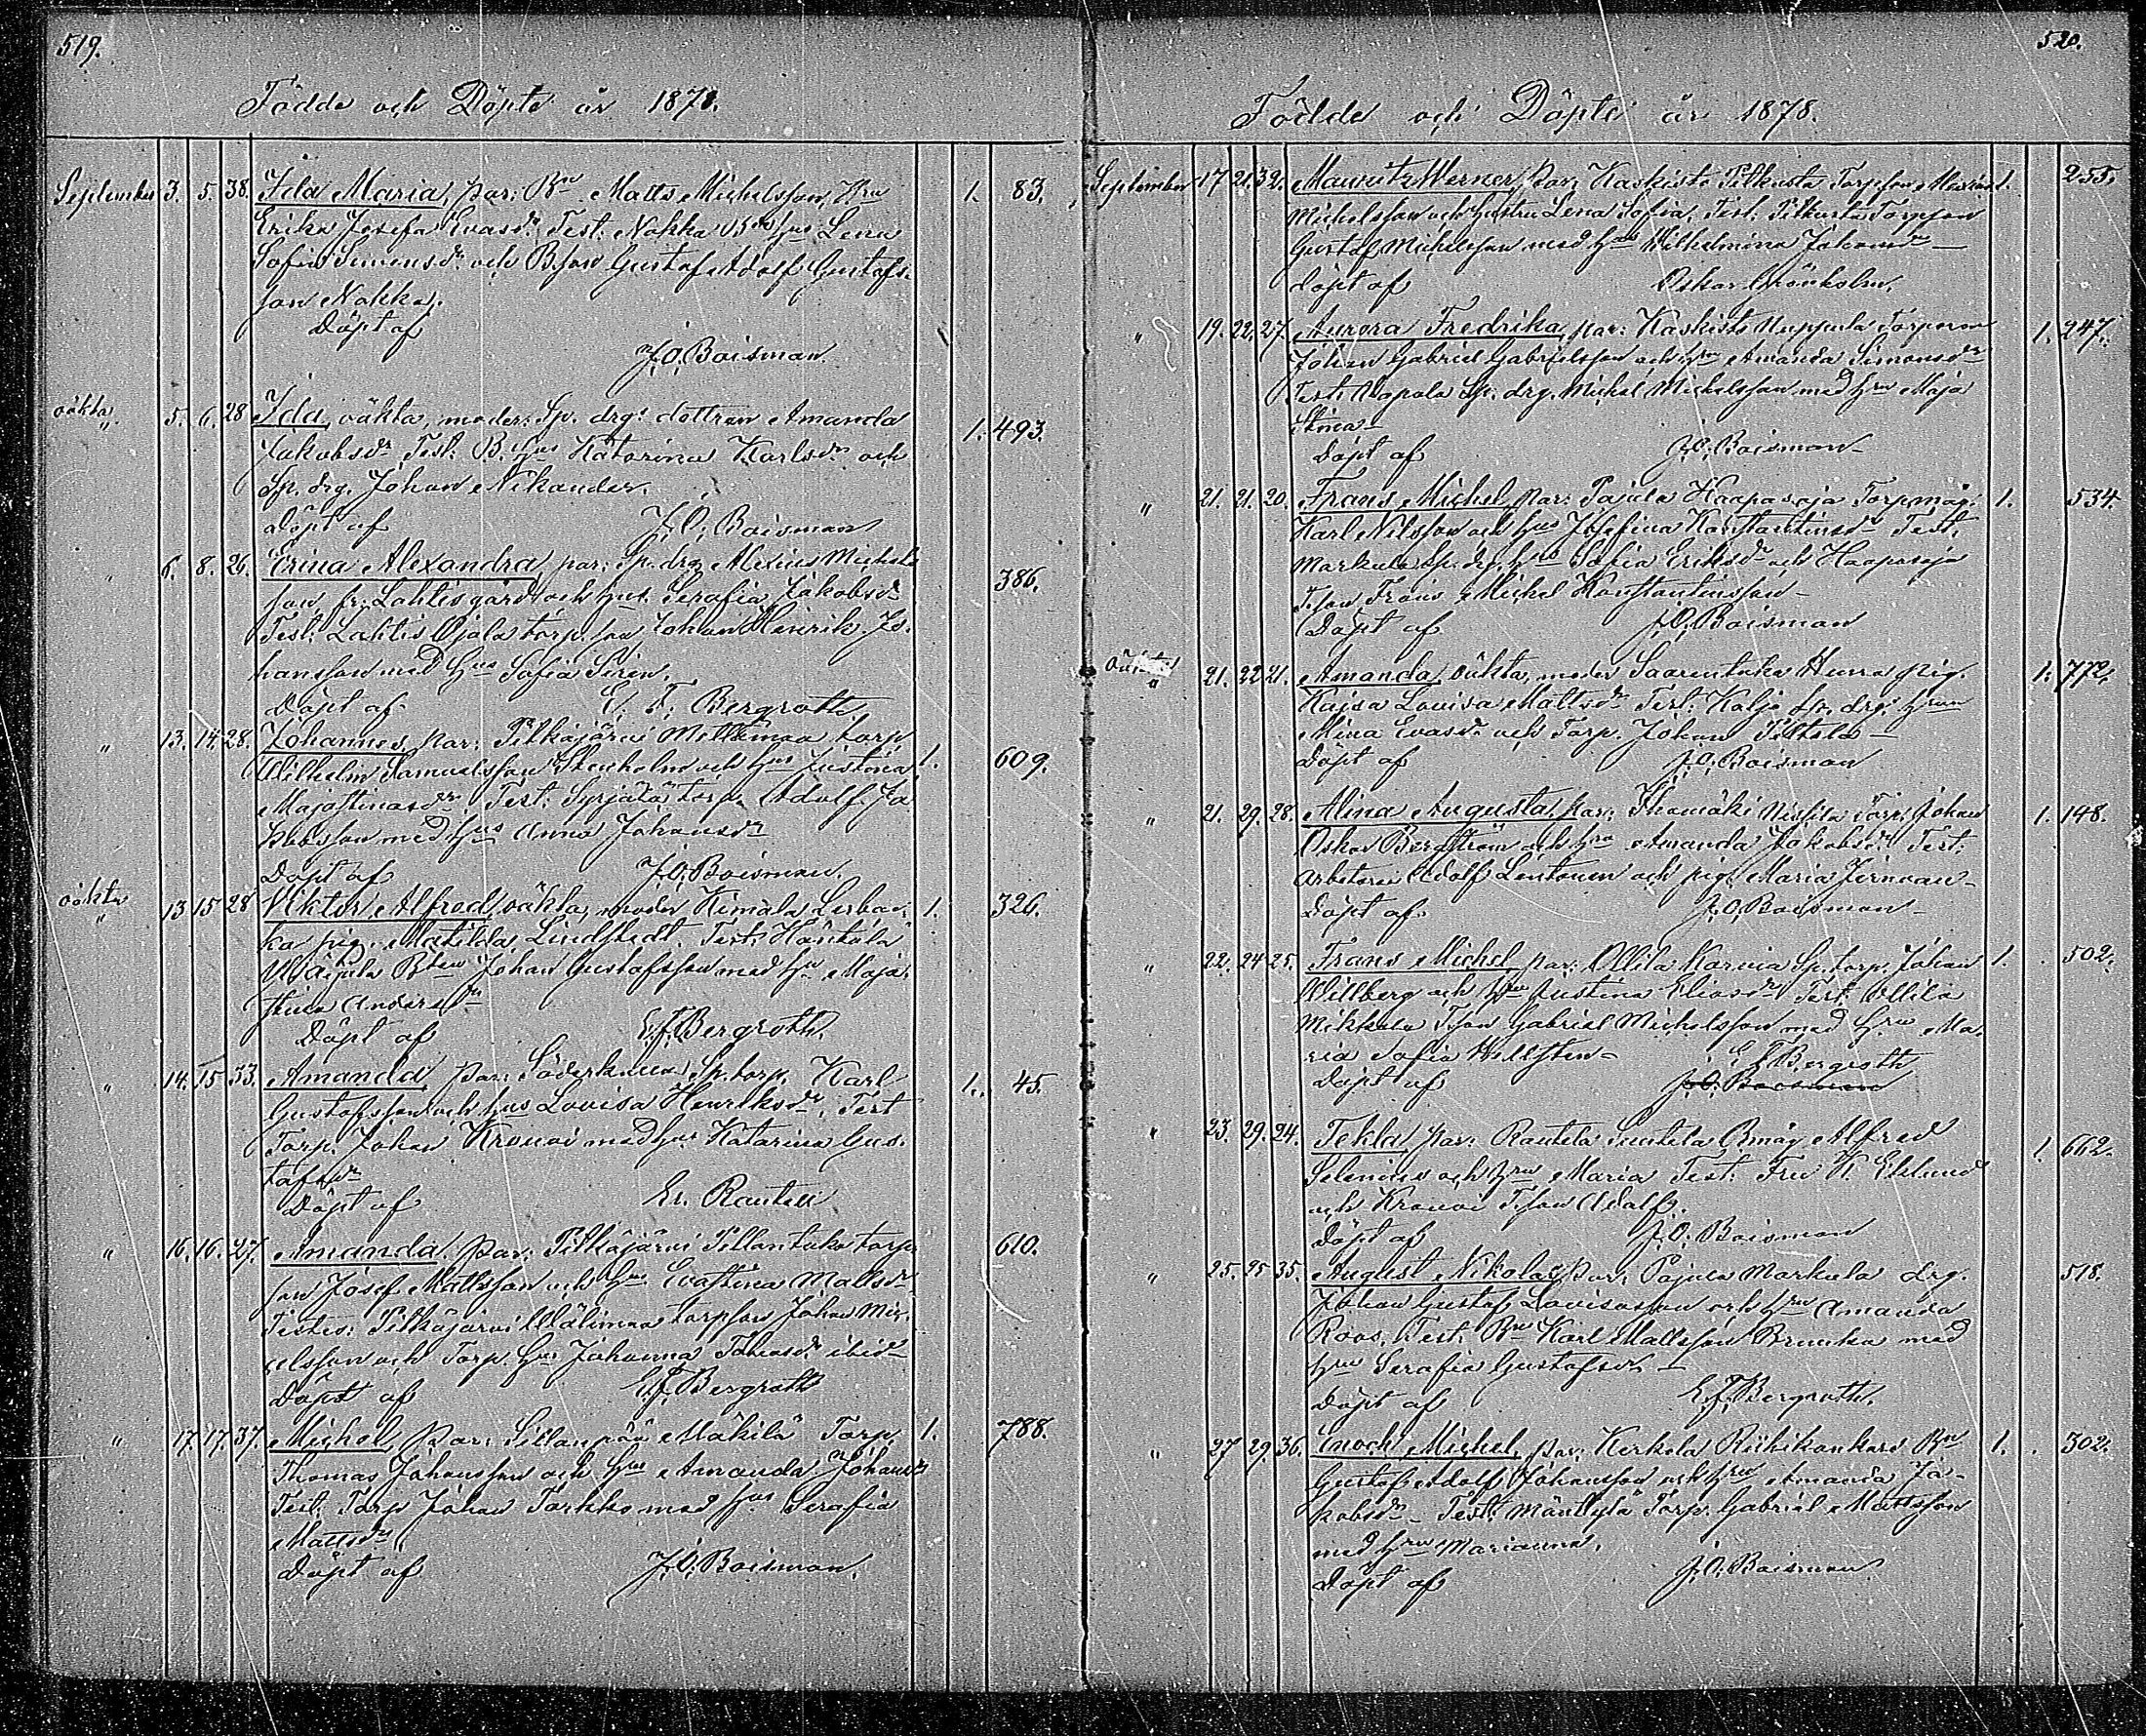 519.
Födde och Döpte år 1878.
September 3. 5. 38. Ida Maria, par: Bn Matts Michelsson, Hru 1. 83.
Erika Josefa Evasdr Test: Nokka Bds hus Lena
Sofia Simonsdr och B.son Gustaf Adolf Gustafs-
son Nokka.
Döpt af
J. O. Boisman.
oäkta " 5. 6. 28 Ida, oäkta, moder: Sp. drgs dottren Amanda 1. 493.
Jakobsdr Test: B. hus Katarina Karlsdr och
Sp. drg. Johan Nikander.
Döpt af J. O. Boisman
" 6. 8. 26. Erina Alexandra, par: Sp. drg Alexius Michels- 386.
son fr: Lahtis gård och hus. Serafia Jakobsdr
Test: Lahtis Ojala torp. son Johan Henrik Jo-
hansson med hus Sofia Siren.
Döpt af E. F. Bergroth.
" 13. 14. 28. Johannes, par: Pitkäjärvi Mettämaa torp. 1. 609.
Wilhelm Samuelsson Stenholm och hus Justina
Majastinasdr Test: Syrjälä torp. Adolf Ja-
kobsson med hus Anna Johansdr
Döpt af J. O. Boisman.
oäkta " 13 15 28 Viktor Alfred, oäkta, moder Kimala 1. 326.
ka pig. Matilda Lindstedt. Test: Häntälä
Johan Gustafsson med hu Maja
stina Andersdr
Döpt af E. F. Bergroth.
" 14. 15 33. Amanda par: Söderkulla Sp. torp. Karl 1. 45.
Gustafsson och hus Lovisa Henriksdr, Test
Torp. Johan Kronoi med hus Katarina Gus-
tafsdr
Döpt af Er. Rautell
" 16. 16. 27. Amanda. Par: Pitkäjärvi Pellontaka torp. 610.
son Josef Mattsson och hus Evastina Mattsdr
Testes: Pitkäjärvi Wälimaa torpson Johan Mic-
elsson och Torp. hus Johanna Tomasdr ibid
Döpt af E. F. Bergroth
" 17. 17. 37. Michel, Par: Sillanpää Mäkilä Torp. 1. 788.
Thomas Johansson och hus Amanda Johansdr
Test: Torp Johan Torkko med hus Serafia
Mattsdr
Döpt af J. O. Boisman.
520.
Födde och Döpte år 1878.
September 17 21. 32. Mauritz Werner, Par: Kaskisto Pitkusta Torpson 1. 255.
Michelsson och hustru Lena Sofia, Test: Pitkusta Torpson
Gustaf Michelsson med hus Wilhelmina Johansdr
Döpt af Oskar Grönholm.
" 19. 22. 27. Aurora Fredrika par: Kaskisto Nuppula Torparen 1. 247.
Johan Gabriel Gabrielsson och hru Amanda Simonsdr
Test: Nopola Sp. drg. Michel Michelsson med hru Maja
Stina
Döpt af J. O. Boisman
" 21. 21. 20. Frans Michel, par: Pajula Haapasoja Torpmåg 1. 534.
Karl Nilsson och hus Josefina Konstantinsdr Test.
Markula Sp. drg. hus Sofia Eriksdr och Haapasoja
T.son Frans Michel Konstantinsson
Döpt af J. O. Boisman
oäkta " 21. 22 21. Amanda, oäkta, moder Saarentaka Hurra pig. 1. 772.
Kajsa Lovisa Mattsdr Test: Kaljo Sp. drg. hrun
Mina Evasdr och Torp. Johan
Döpt af J. O. Boisman
" 21. 29. 28. Alina Augusta, par: Ihamäki Nissila Torp. Johan 1. 148.
Oskar Bergström och hru Amanda Jakobsdr Test:
Arbetaren Adolf Lentonen och pig. Maria
Döpt af J. O. Boisman
" 22. 24 25. Frans Michel, par: Ollila Karvia Sp. torp. Johan 1. 502.
Willberg och hru Justina Eliasdr Test: Ollila
Mikkola Tson Gabriel Michelsson med hru Ma-
ria Sofia Wellsten
E F Bergroth
Döpt af J. O. Boisman
" 23. 29. 24. Tekla, par: Rautela Suntela Bmåg Alfred 1. 662.
Selenius och hru Maria Test: Fru K. Eklund
och Kronoi Tson Adolf.
Döpt af J. O. Boisman
" 25. 25 35. August Nikolai, Par: Pajula Markula drg. 518.
Johan Gustaf Lovisasson och hru Amanda
Roos. Test: Bn Karl Mattsson Brunka med
hru Serafia Gustafsdr
Döpt af E. F. Bergroth.
" 27 29. 36. Enoch Michel, par: Kerkola Riihikankare Bn 1. 302.
Gustaf Adolf Johansson och hru Amanda Ja-
kobsdr Test: Mäntylä Torp. Gabriel Mattsson
med hru Marianna.
Döpt af J. O. Boisman.